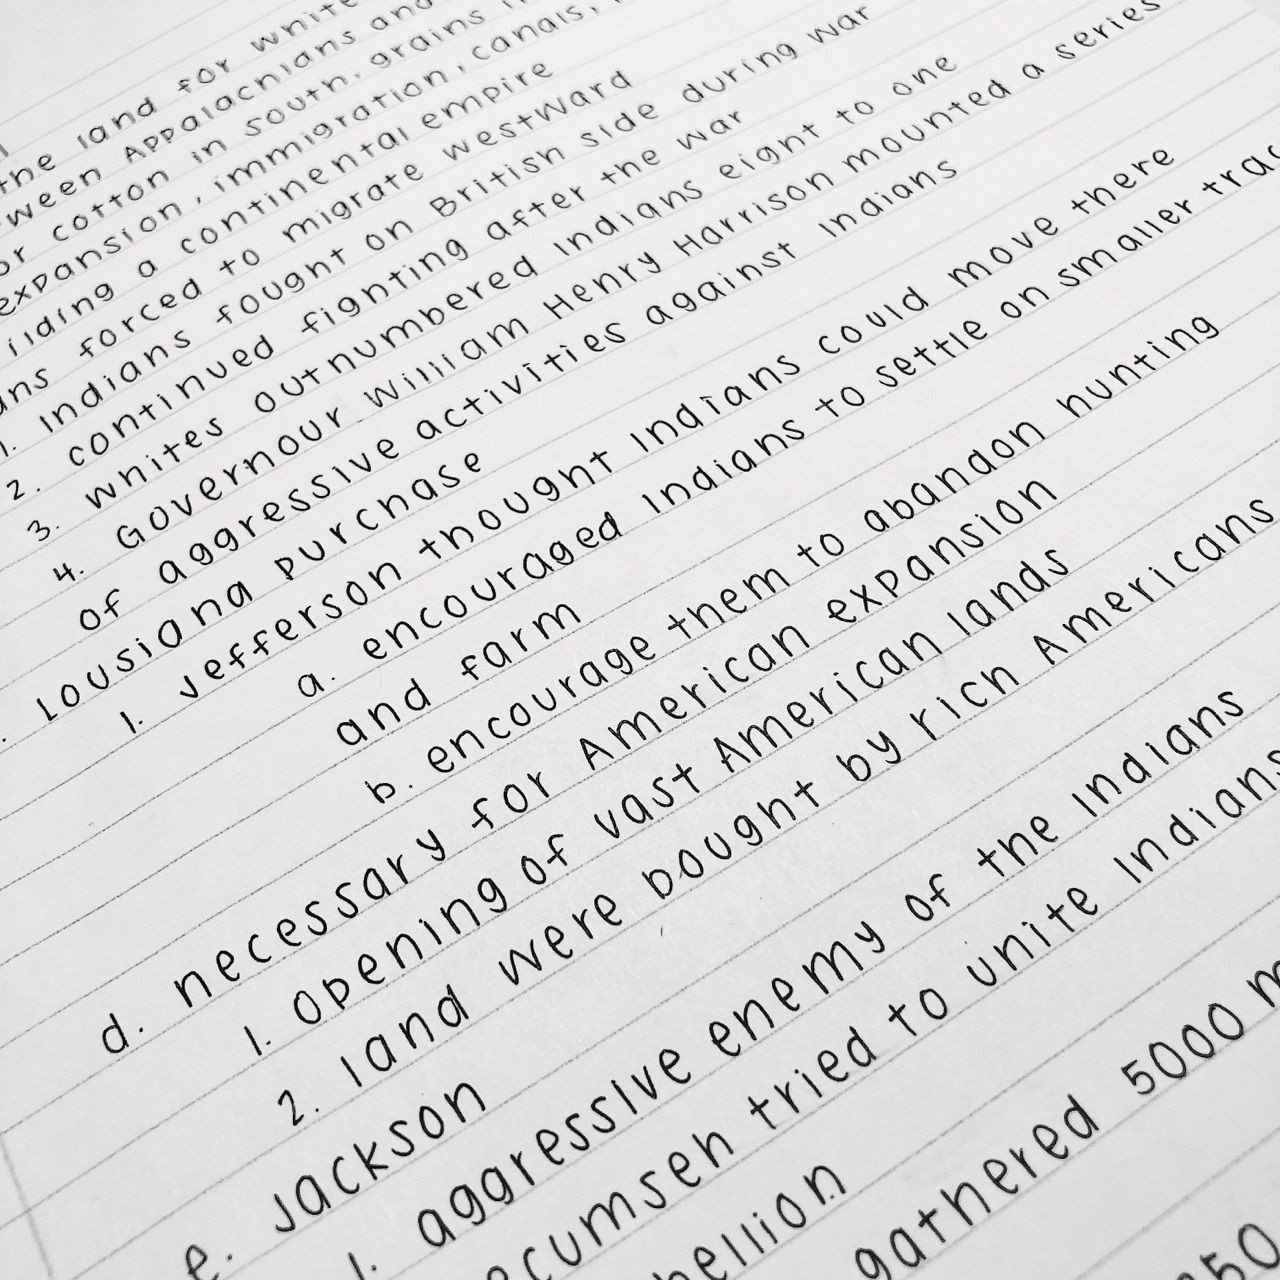 the land for white
Appalachians and
cotton in south, grains
expansion, immigration, canals,
a continental empire
forced to migrate westward
1. Indians fought on British side during war
2. continued fighting after the war
3. whites outnumbered Indians eight to one
4. Governour William Henry Harrison mounted a series
of aggressive activities against Indians
Lousiana purchase
1. Jefferson thought Indians could move there
a. encouraged Indians to settle on smaller
and farm
b. encourage them to abandon hunting
d. necessary for American expansion
1. Opening of vast American lands
2. land were bought by rich Americans
e. Jackson
1. aggressive enemy of the Indians
ecumseh tried to unite Indians
bellion
gathered 5000